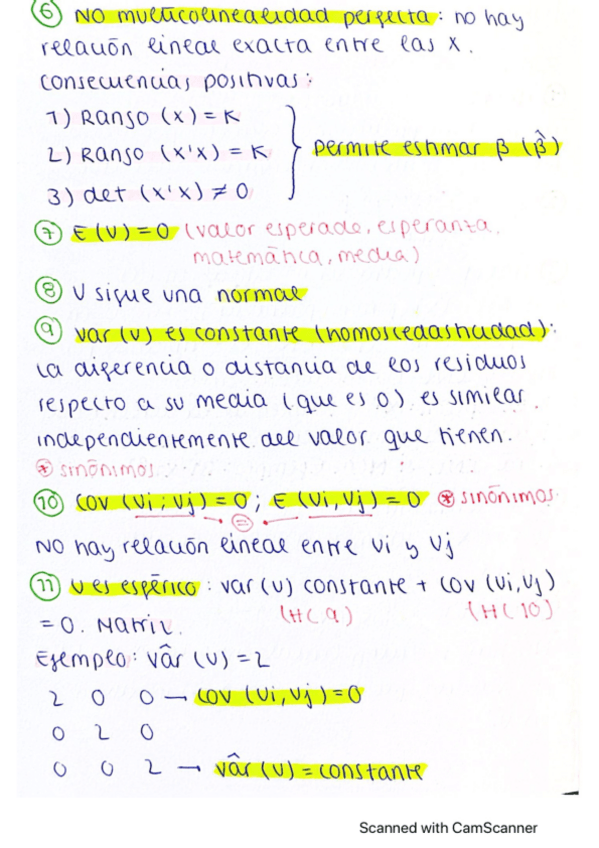 ⑥ NO multicolinealidad perfecta: no hay
relación lineal exacta entre las X.
consecuencias positivas:
1) Rango (X) = K
2) Rango (X'X) = K
3) det (X'X) ≠ 0
permite estimar β (β̂)
⑦ E(U)=0 (valor esperado, esperanza,
matemática, media)
⑧ U sigue una normal
⑨ var(U) es constante (homoscedasticidad):
La diferencia o distancia de los residuos
respecto a su media (que es 0) es similar
independientemente del valor que tienen.
* sinónimos
⑩ COV (Ui; Uj) = 0; E (Ui, Uj) = 0 * sinónimos
=
NO hay relación lineal entre Ui y Uj
⑪ U es esférico: var(U) constante + COV (Ui, Uj)
(HC 9) (HC 10)
= 0. Matriz.
Ejemplo: vâr (U) = 2
2 0 0 → COV (Ui, Uj) = 0
0 2 0
0 0 2 → vâr (U) = constante
Scanned with CamScanner